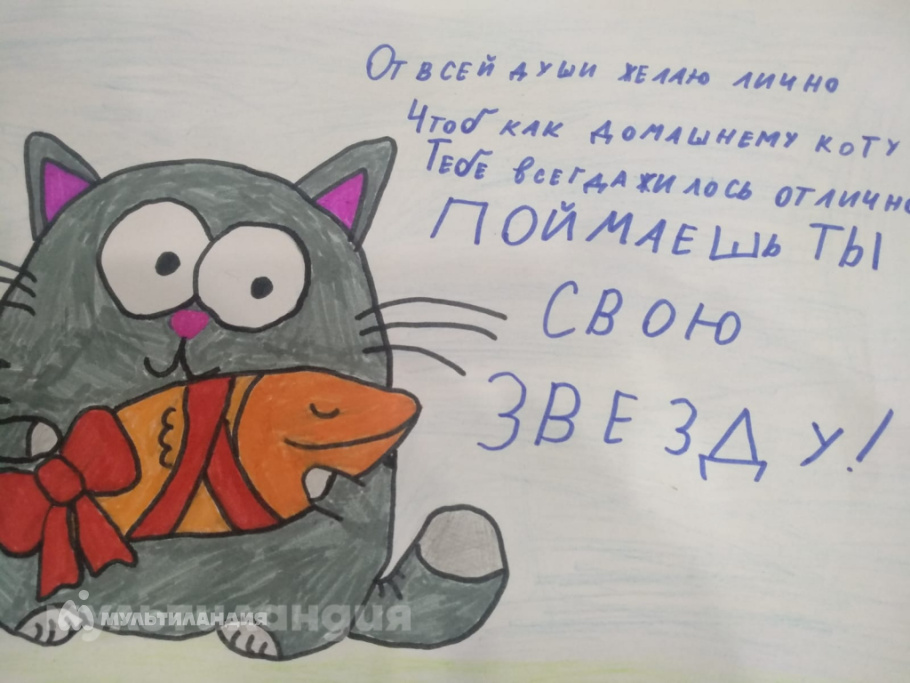 От всей души желаю лично
Чтоб как домашнему коту
Тебе всегда жилось отлично
ПОЙМАЕШЬ ТЫ
СВОЮ
ЗВЕЗДУ!
МУЛЬТИЛАНДИЯ